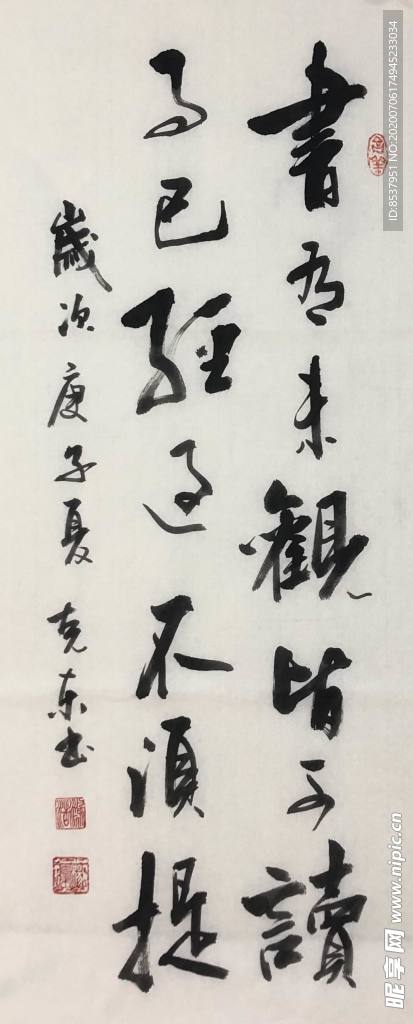 書有未觀皆可讀
事已經過不須提
歲次庚子夏 克东书
ID:8537951 NO:20200706174945233034
昵享网 www.nipic.cn